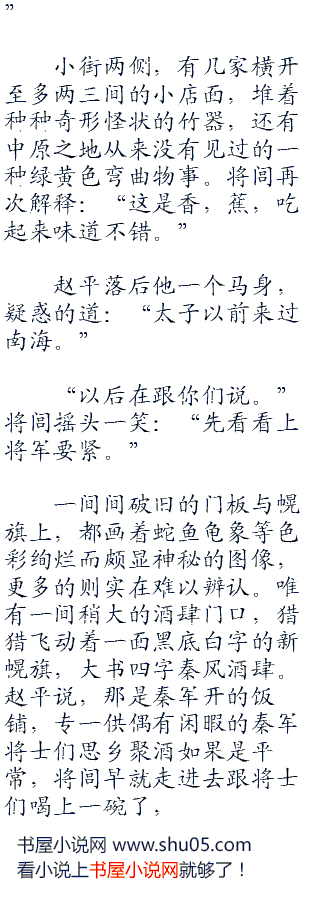 ”
小街两侧，有几家横开
至多两三间的小店面，堆着
种种奇形怪状的竹器，还有
中原之地从来没有见过的一
种绿黄色弯曲物事。将闾再
次解释：“这是香，蕉，吃
起来味道不错。”
赵平落后他一个马身，
疑惑的道：“太子以前来过
南海。”
“以后在跟你们说。”
将闾摇头一笑：“先看看上
将军要紧。”
一间间破旧的门板与幌
旗上，都画着蛇鱼龟象等色
彩绚烂而颇显神秘的图像，
更多的则实在难以辨认。唯
有一间稍大的酒肆门口，猎
猎飞动着一面黑底白字的新
幌旗，大书四字秦风酒肆。
赵平说，那是秦军开的饭
铺，专一供偶有闲暇的秦军
将士们思乡聚酒如果是平
常，将闾早就走进去跟将士
们喝上一碗了，
书屋小说网 www.shu05.com
看小说上书屋小说网就够了！